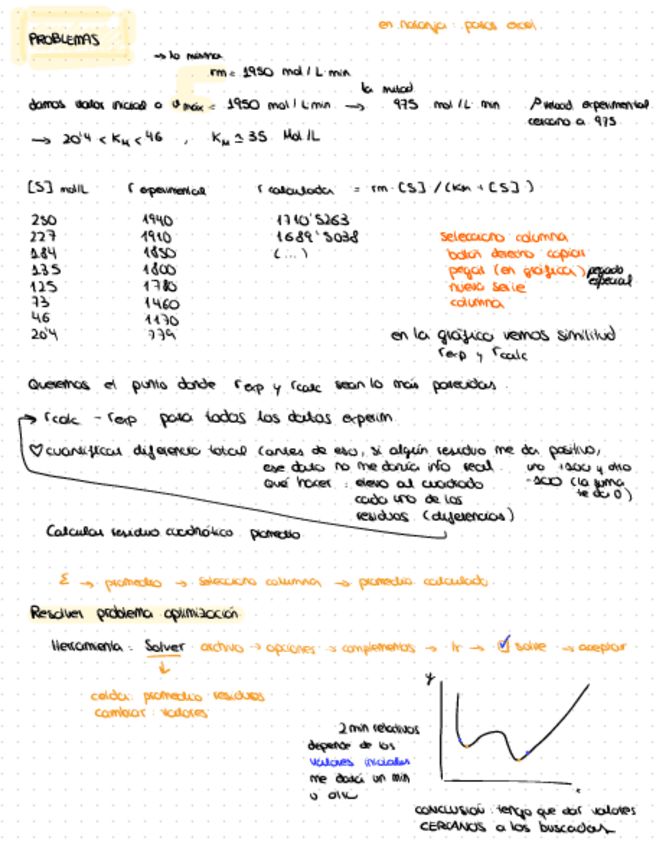 en naranja : pasos excel.
PROBLEMAS
→ lo mismo
rm = 1950 mol / L · min
la mitad
damos valor inicial a vmáx = 1950 mol / L min → 975 mol / L · min velocidad experimental
cercano a 975
→ 20'4 < KM < 46 , KM ≃ 35 Mol /L
[S] mol/L r experimental r calculada = rm · [S] / (Km + [S])
250 1940 1710'5263
227 1910 1689'5038 selecciono columna
184 1850 (...) botón derecho copiar
135 1800 pegar (en gráfica) pegado especial
125 1780 nueva serie
73 1460 columna
46 1170
20'4 779 en la gráfica vemos similitud
rexp y rcalc
Queremos el punto donde rexp y rcalc sean lo más parecidas.
→ rcalc - rexp para todos los datos experim.
♡ cuantificar diferencia total (antes de eso, si algún residuo me da positivo,
ese dato no me daría info real. uno 1500 y otro
qué hacer : elevo al cuadrado -500 (la suma
cada uno de los te da 0)
residuos (diferencias)
Calcular residuo cuadrático promedio
Σ → promedio → selecciono columna → promedio calculado
Resolver problema optimización
Herramienta : Solver archivo → opciones → complementos → Ir → ☑ solve → aceptar
↓
celda : promedio residuos
cambiar : valores
y
2 min relativos
depende de los
valores iniciales
me dará un min
u otro
x
CONCLUSIÓN : tengo que dar valores
CERCANOS a los buscados